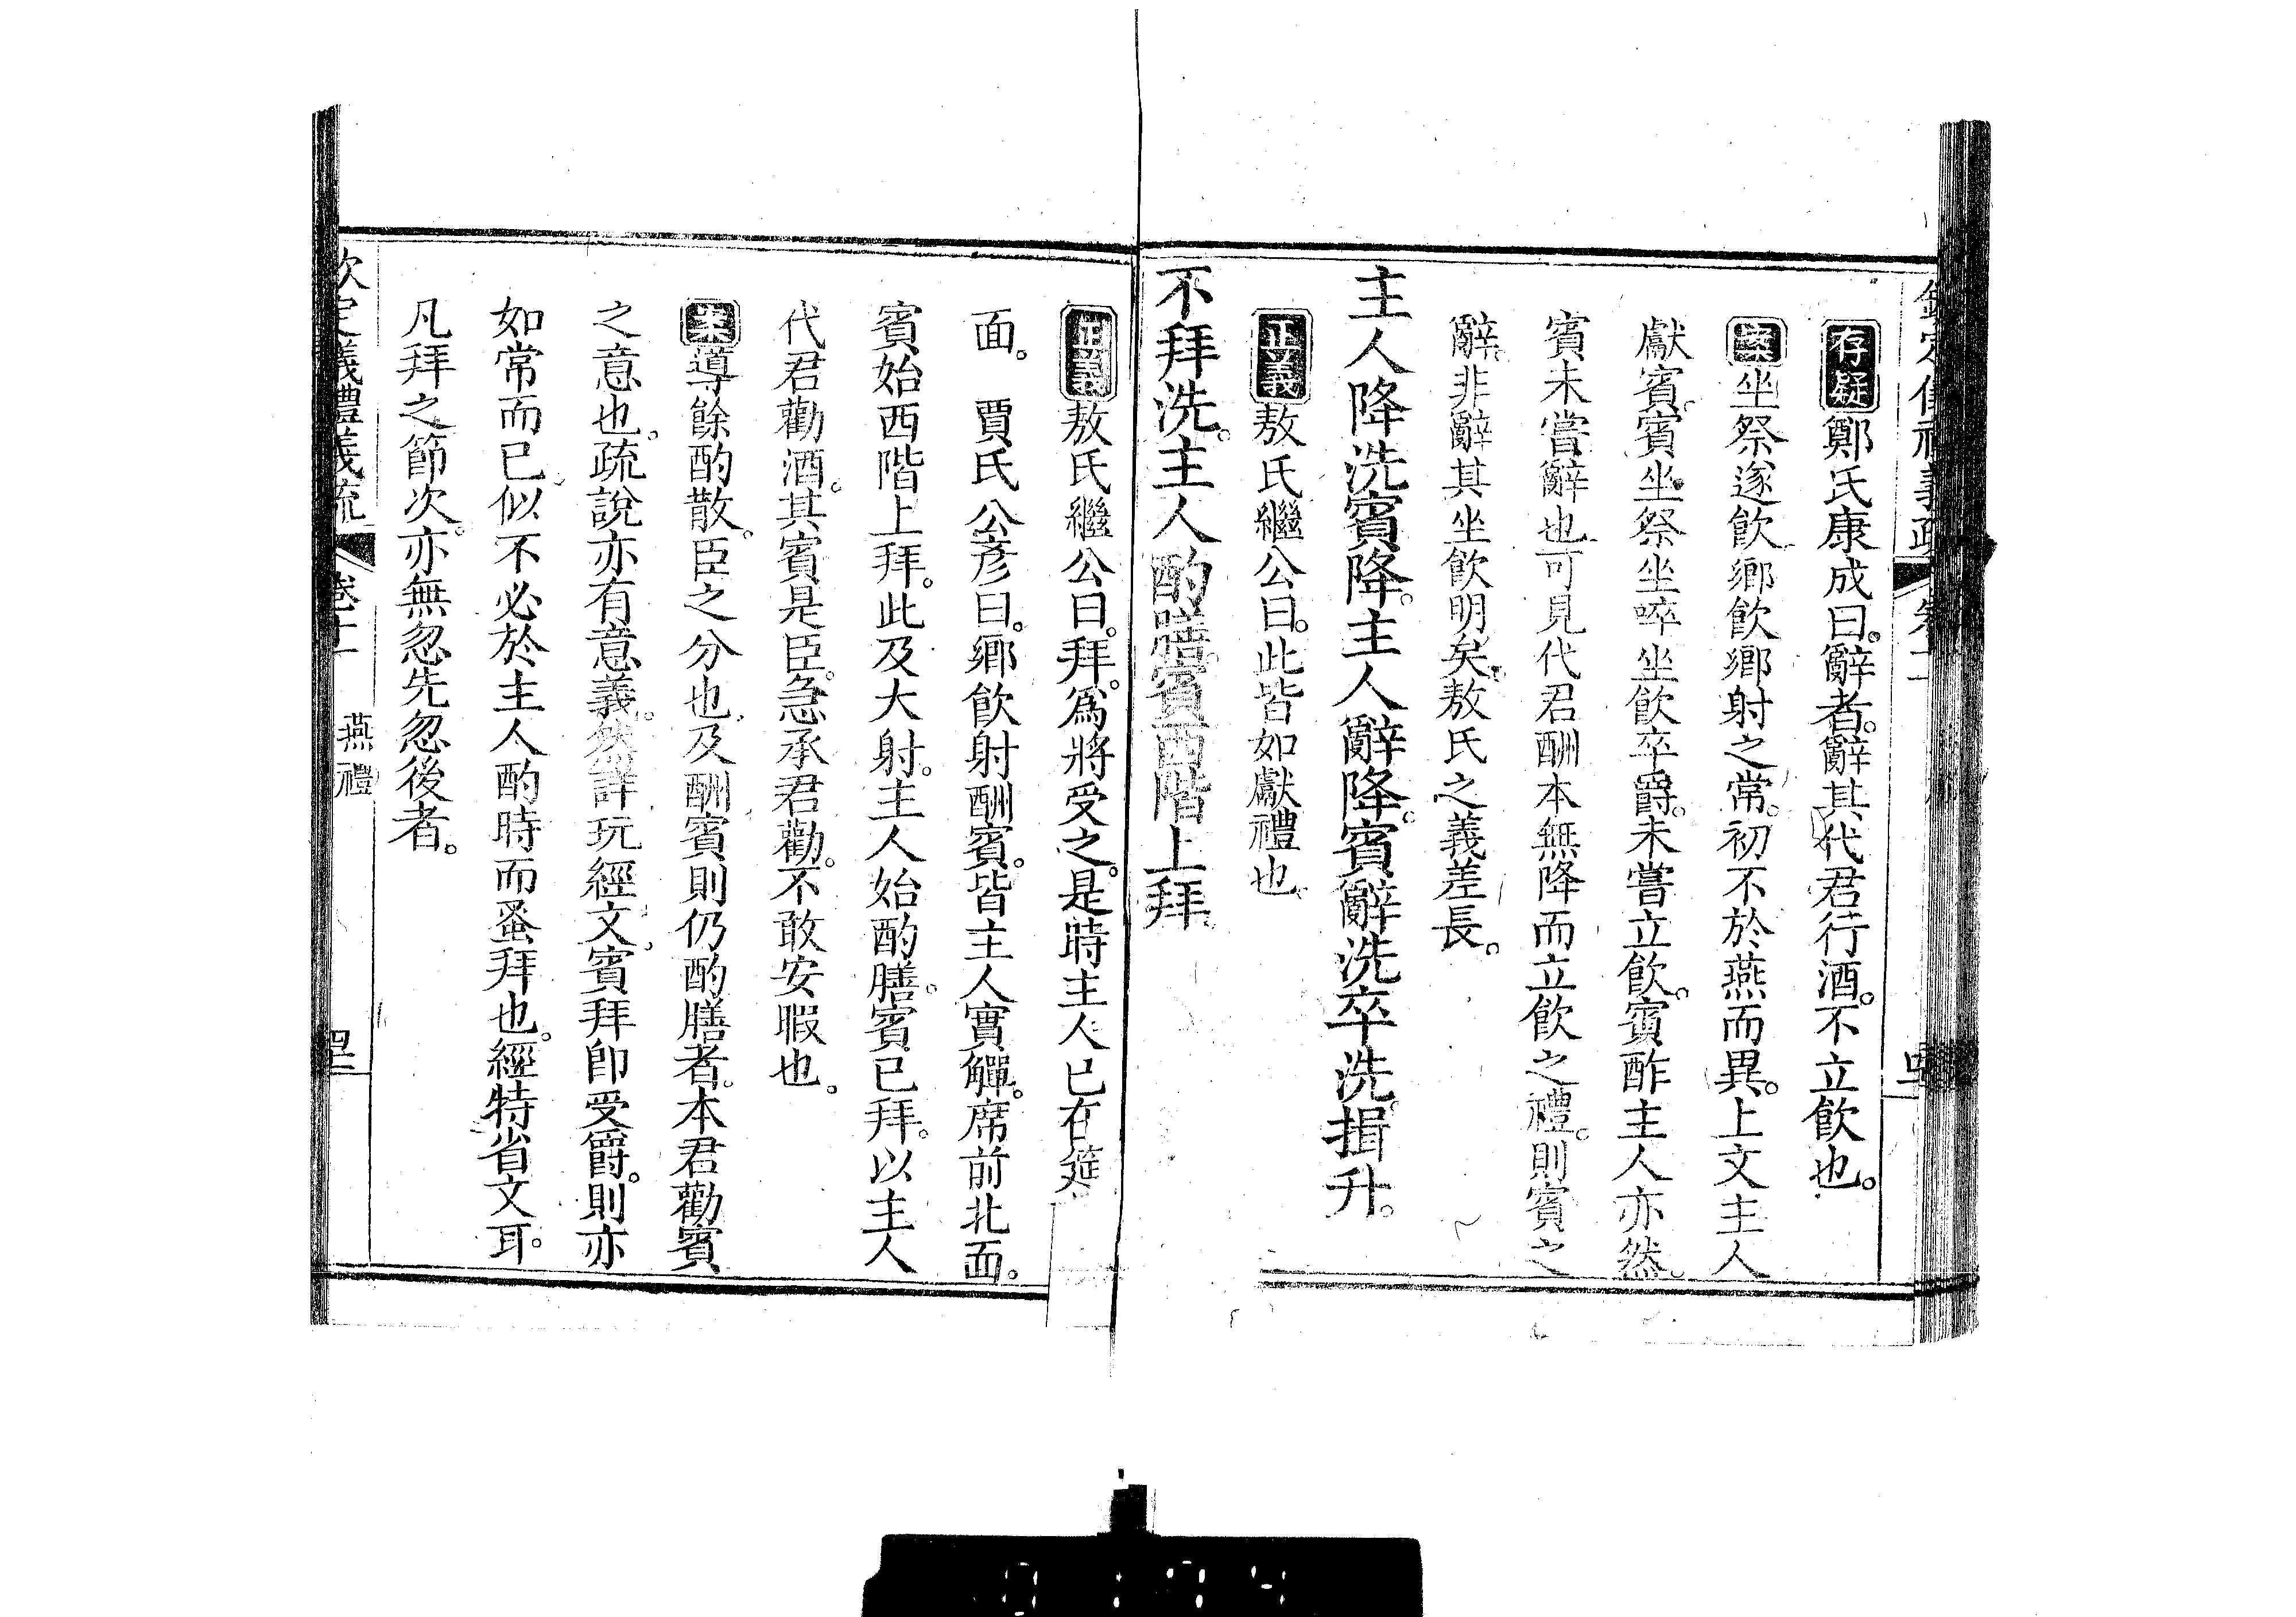 存疑鄭氏康成曰。辭者。辭其代君行酒。不立飲也。
案坐祭遂飲鄉飲鄉射之常。初不於燕而異。上文主人
獻賓。賓坐祭坐啐坐飲卒爵。未嘗立飲。賓酢主人亦然。
賓未嘗辭也。可見代君酬本無降而立飲之禮。則賓之
辭。非辭其坐飲明矣。敖氏之義差長。
主人降洗賓降。主人辭降。賓辭洗卒洗。揖升。
正義敖氏繼公曰。此皆如獻禮也。
不拜洗。主人酌膳。賓西階上拜。
正義敖氏繼公曰。拜。爲將受之。是時主人已在筵
面。 賈氏公彥曰。鄉飲射酬賓。皆主人實觶。席前北面。
賓始西階上拜。此及大射。主人始酌膳。賓已拜。以主人
代君勸酒。其賓是臣。急承君勸。不敢安暇也。
案導餘酌散。臣之分也。及酬賓則仍酌膳者。本君勸賓
之意也。疏說亦有意義。然詳玩經文。賓拜卽受爵。則亦
如常而已。似不必於主人酌時而蚤拜也。經特省文耳。
凡拜之節次。亦無忽先忽後者。
欽定儀禮義疏 卷十一 燕禮